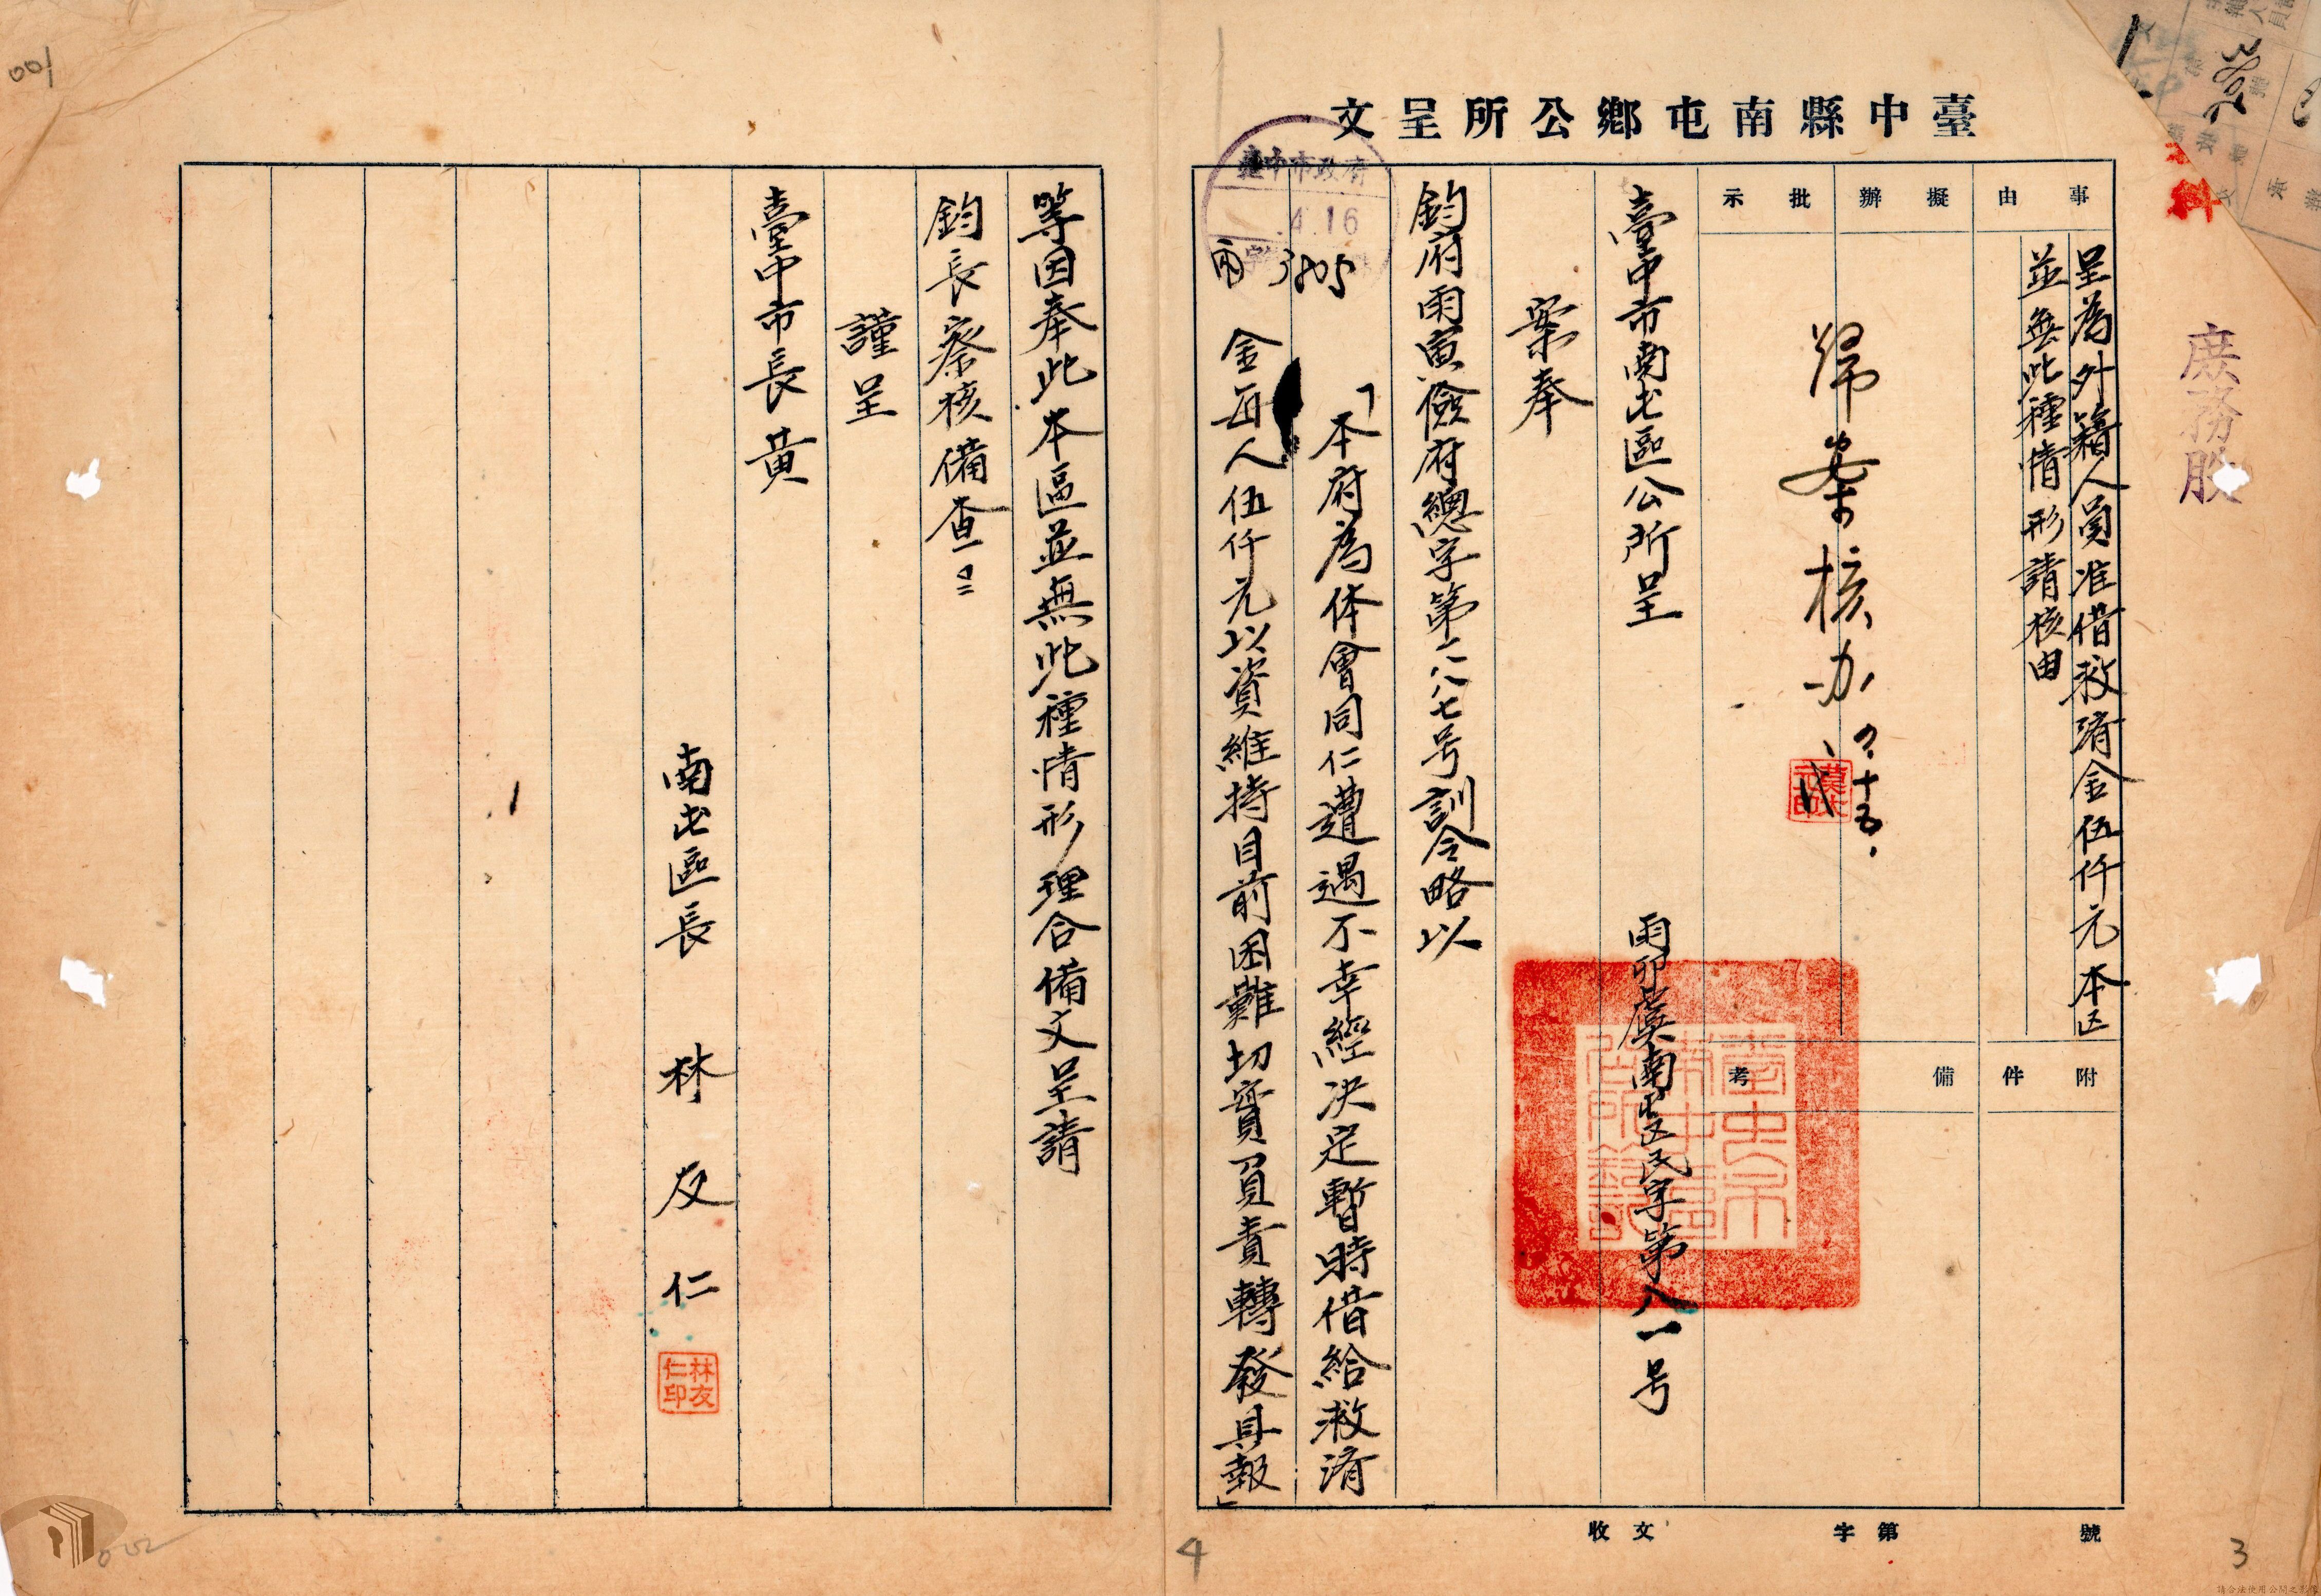 臺中縣南屯鄉公所呈文
事由
呈為外籍人員准借救濟金伍仟元本区
並無此種情形請核由
擬辦
批示
歸案核办
附件
備考
臺中市南屯區公所呈
雨卯虞南屯区民字第八一号
案奉
鈞府雨寅儉府總字第二八七号訓令略以
「本府為体會同仁遭遇不幸經决定暫時借給救濟
金每人伍仟元以資維持目前困難切實負責轉發具報」
等因奉此本區並無此種情形理合備文呈請
鈞長察核備查
謹呈
臺中市長黃
南屯區長 林友仁
林友仁印
收文 字第 號
臺中市政府
4.16
3805
庶務股
001
002
4
3